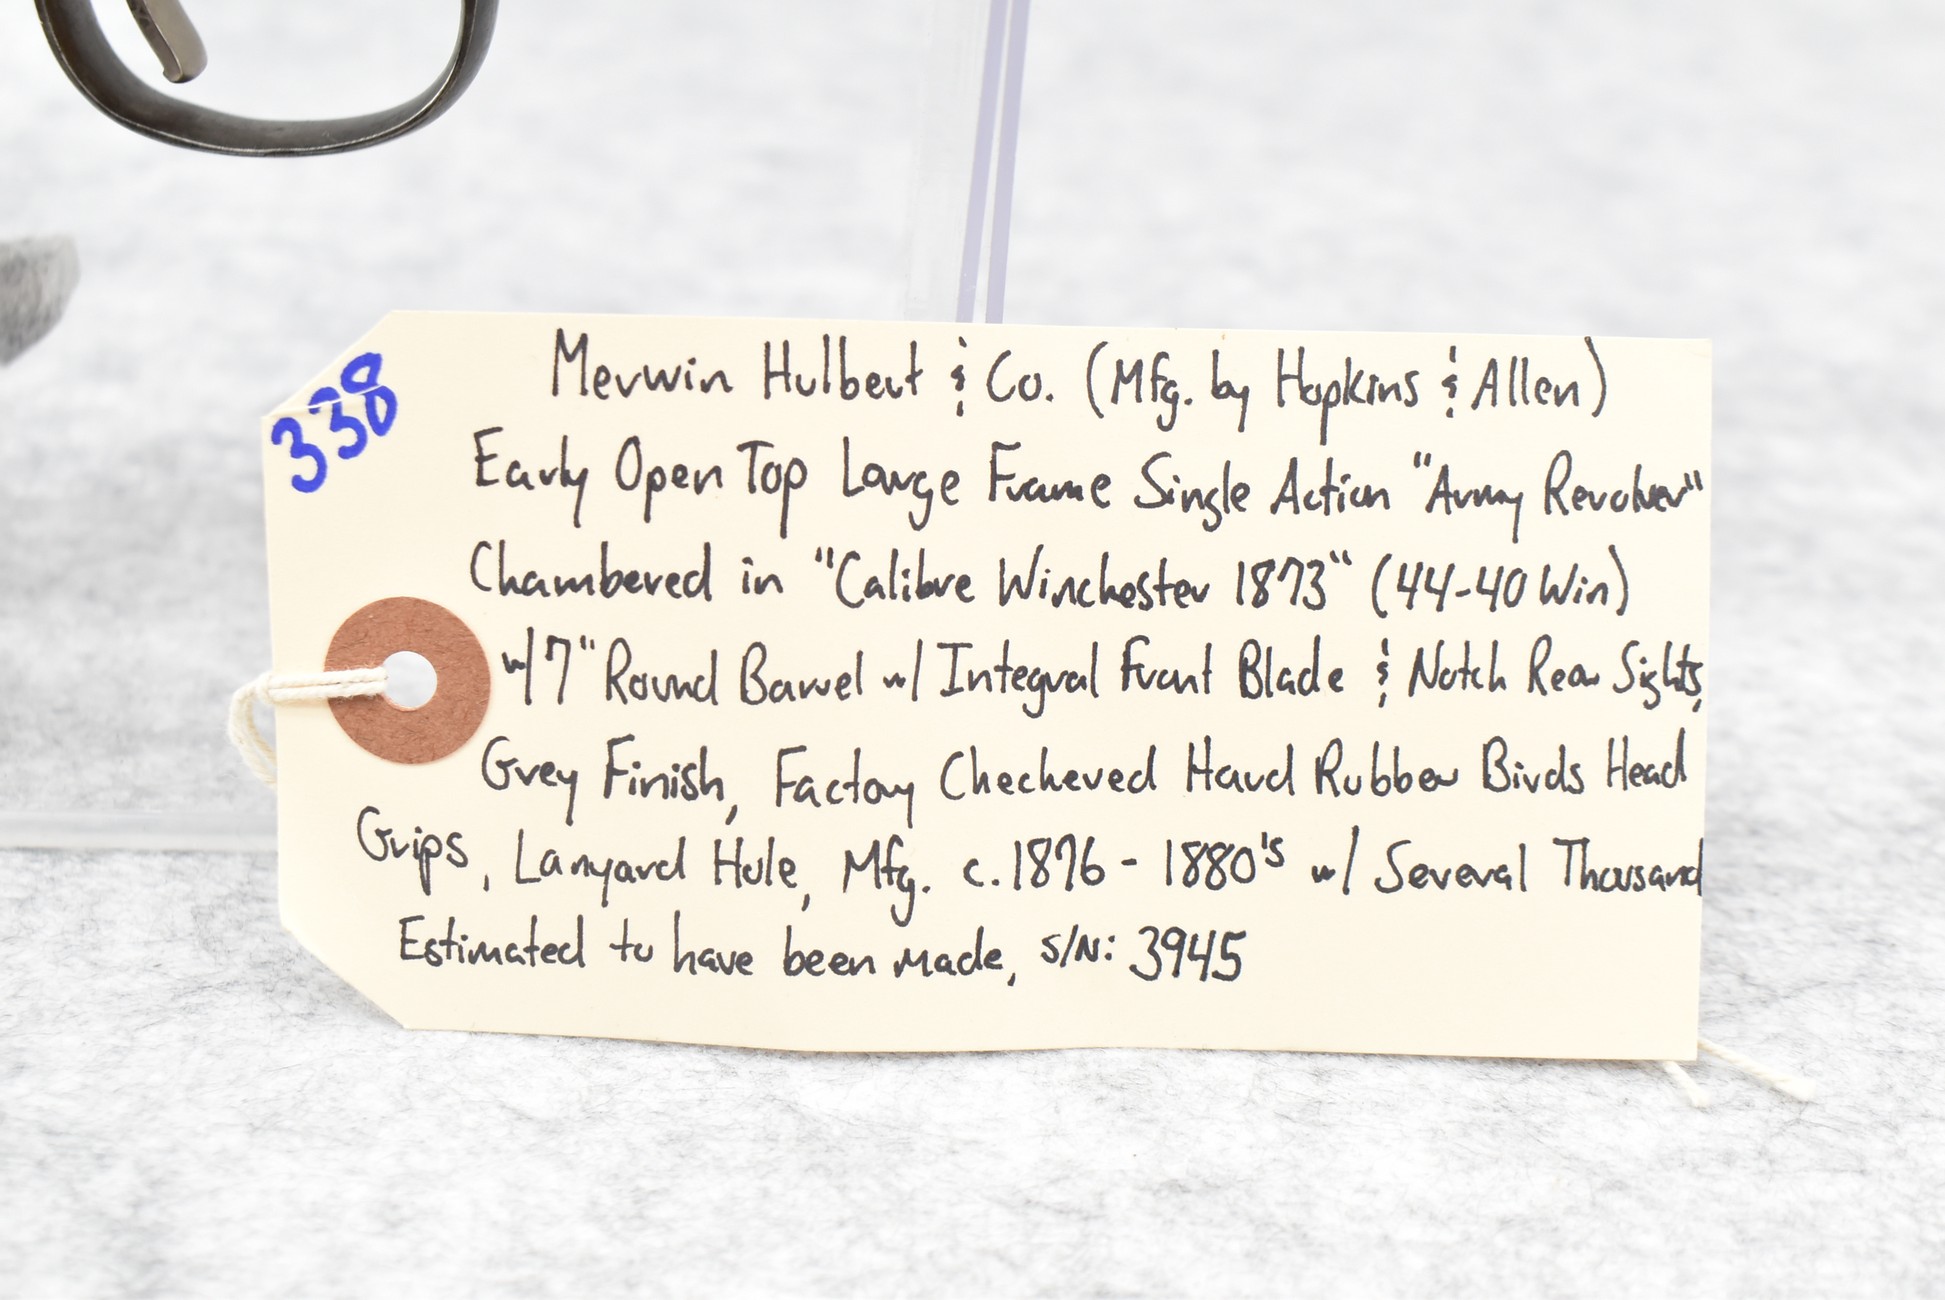 338
Merwin Hulbert & Co. (Mfg. by Hopkins & Allen)
Early Open Top Large Frame Single Action "Army Revolver"
Chambered in "Calibre Winchester 1873" (44-40 Win)
w/ 7" Round Barrel w/ Integral Front Blade & Notch Rear Sights,
Grey Finish, Factory Checkered Hard Rubber Birds Head
Grips, Lanyard Hole, Mfg. c.1876 - 1880's w/ Several Thousand
Estimated to have been made, S/N: 3945